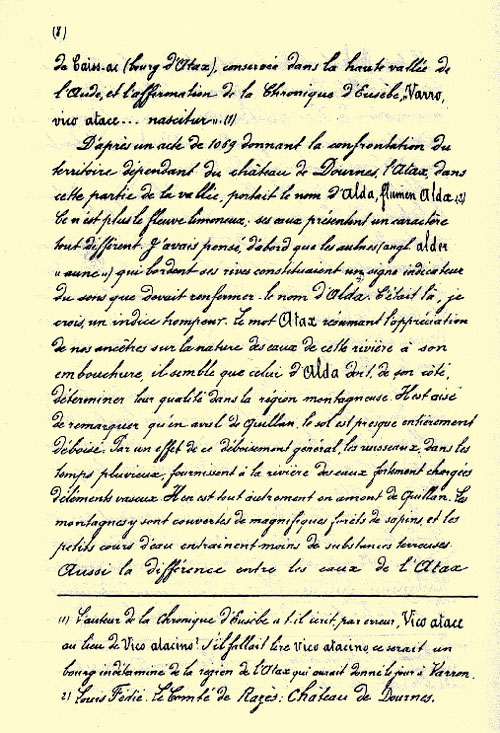 (8)
de Caïrs-ac (bourg d'Atax), conservée dans la haute vallée de
l'Aude, et l'affirmation de la Chronique d'Eusèbe, „Varro,
vico atace ... nascitur". (1)
D'après un acte de 1069 donnant la confrontation du
territoire dépendant du château de Dournes, l'Atax, dans
cette partie de la vallée, portait le nom d'Alda, flumen Aldæ (2)
Ce n'est plus le fleuve limoneux: ses eaux présentent un caractère
tout différent. J'avais pensé, d'abord que les aulnes (angl alder
« aune ») qui bordent ses rives constituaient un signe indicateur
du sens que devait renfermer le nom d'Alda. C'était là, je
crois, un indice trompeur. Le mot Atax résumant l'appréciation
de nos ancêtres sur la nature des eaux de cette rivière à son
embouchure, il semble que celui d'Alda doit, de son côté,
déterminer leur qualité dans la région montagneuse. Il est aisé
de remarquer qu'en aval de Quillan, le sol est presque entièrement
déboisé. Par un effet de ce déboisement général, les ruisseaux, dans les
temps pluvieux, fournissent à la rivière des eaux fortement chargées
d'éléments vaseux. Il en est tout autrement en amont de Quillan. Les
montagnes y sont couvertes de magnifiques forêts de sapins, et les
petits cours d'eau entraînent moins de substances terreuses.
Aussi la différence entre les eaux de l'Atax
(1) L'auteur de la chronique d'Eusèbe a t-il écrit, par erreur, Vico atace
au lieu de Vico atacino? S'il fallait lire vico atacino, ce serait un
bourg indéterminé de la région de l'Atax qui aurait donné le jour à Varron.
2) Louis Fédié. Le Comté de Razès: Château de Dournes.